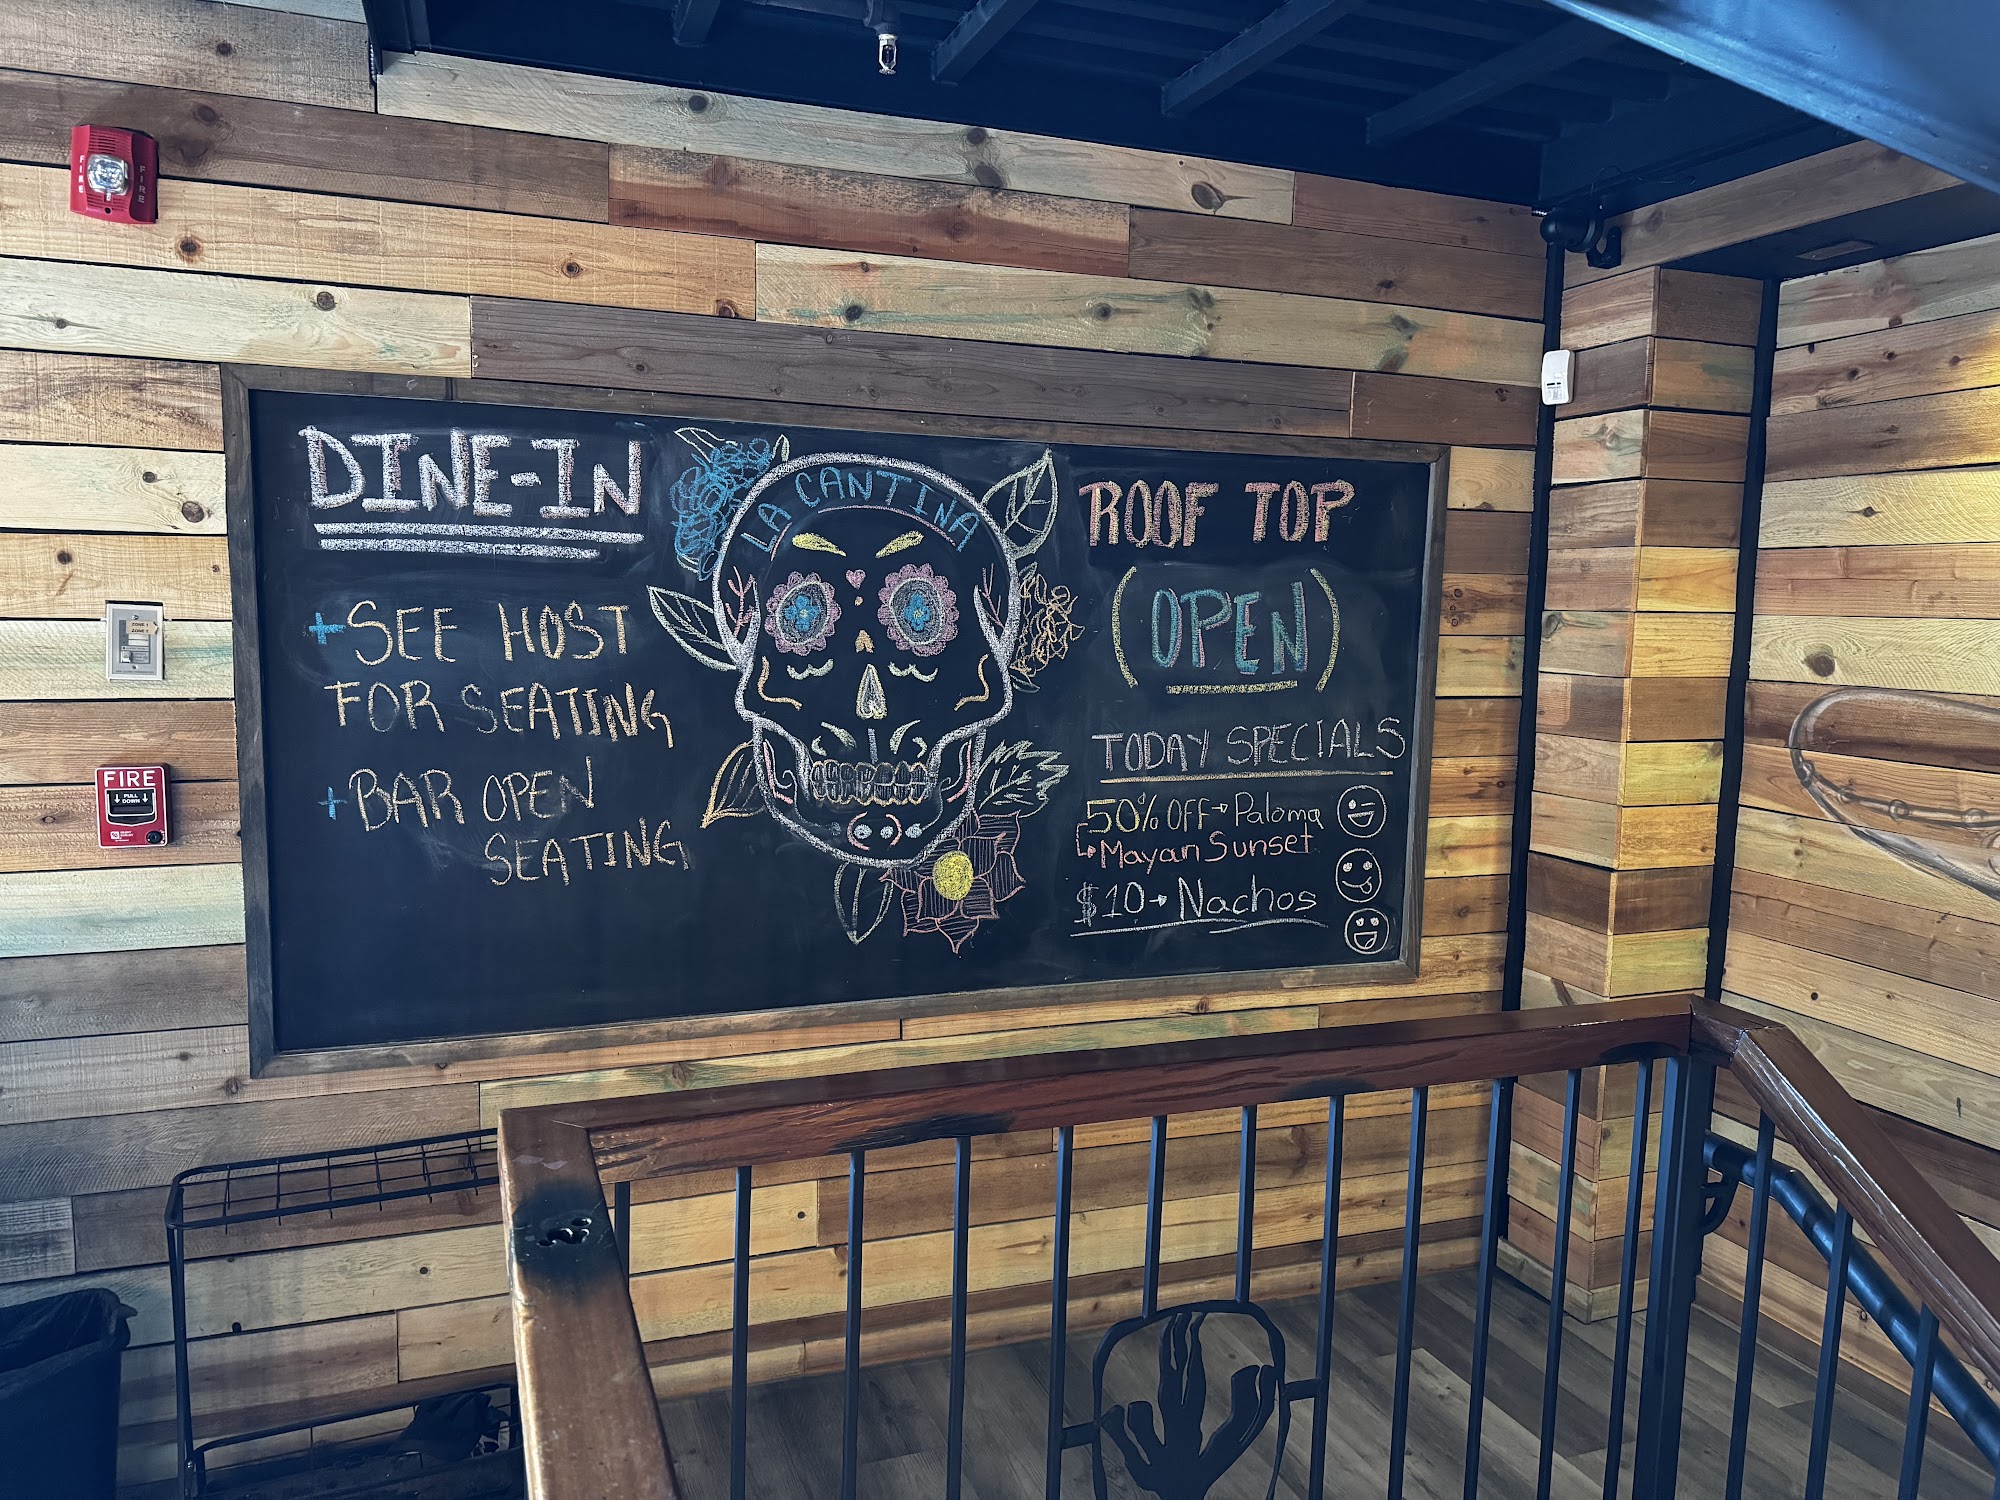 DINE-IN
+ SEE HOST
FOR SEATING
+ BAR OPEN
SEATING
LA CANTINA
ROOF TOP
(OPEN)
TODAY SPECIALS
50% OFF → Paloma
↳ Mayan Sunset
$10 → Nachos
FIRE
FIRE
ZONE 1
ZONE 2
FIRE
PULL
DOWN